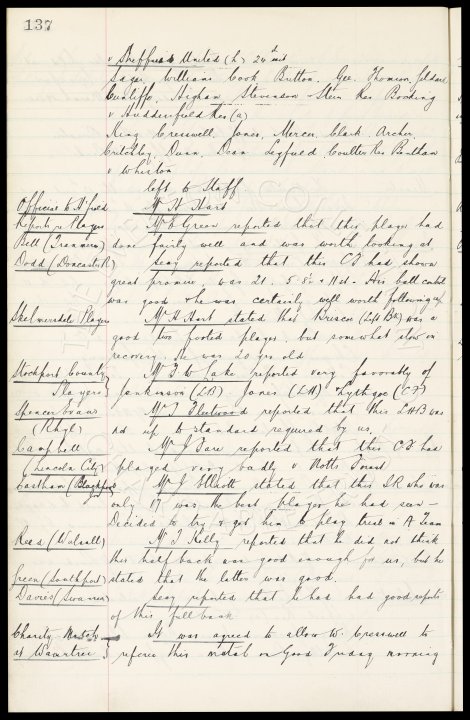 137
v Sheffield United (h) 24th
Sagar, Williams Cook Britton. Gee. Thomson, Geldard
Cunliffe, Higham Stevenson & Stein Res Bonding
v Huddersfield Res (a)
King Cresswell, Jones, Mercer, Clark, Archer,
Critchley, Dunn, Dean Leyfield Coulter Res Bentham
v Whiston
left to Staff
Officials to H'field Mr H Hart
Reports re Players Mr E Green reported that this player had
Bell (Tranmere) done fairly well and was worth looking at
Dodd (Doncaster R) Secy reported that this CF had shown
great promise was 21. 5.8½ & 11st. His ball control
was good & he was certainly well worth following up
Skelmersdale Players Mr H Hart stated that Briscoe (Left Bk) was a
good two footed player but somewhat slow on
recovery. He was 20 yrs old
Stockport County Mr T W Lake reported very favorably of
Players Jenkinson (LB) Jones (LH) Lythgoe (CF)
Spencer Evans Mr J Fleetwood reported that this LHB was
(Rhyl) not up to standard required by us.
Campbell Mr J Fare reported that this CF had
(Lincoln City) played very badly v Notts Forest
Eastham (Blackpool) Mr J Elliott stated that this IR who was
only 17 was the best player he had seen –
Decided to try & get him to play trial in A Team
Reed (Walsall) Mr J Kelly reported that he did not think
this half back was good enough for us, but he
Green (Southport) stated that the latter was good
Davies (Swansea) Secy reported that he had had good reports
of this full back
Charity Match It was agreed to allow W. Cresswell to
at Wavertree referee this match on Good Friday morning